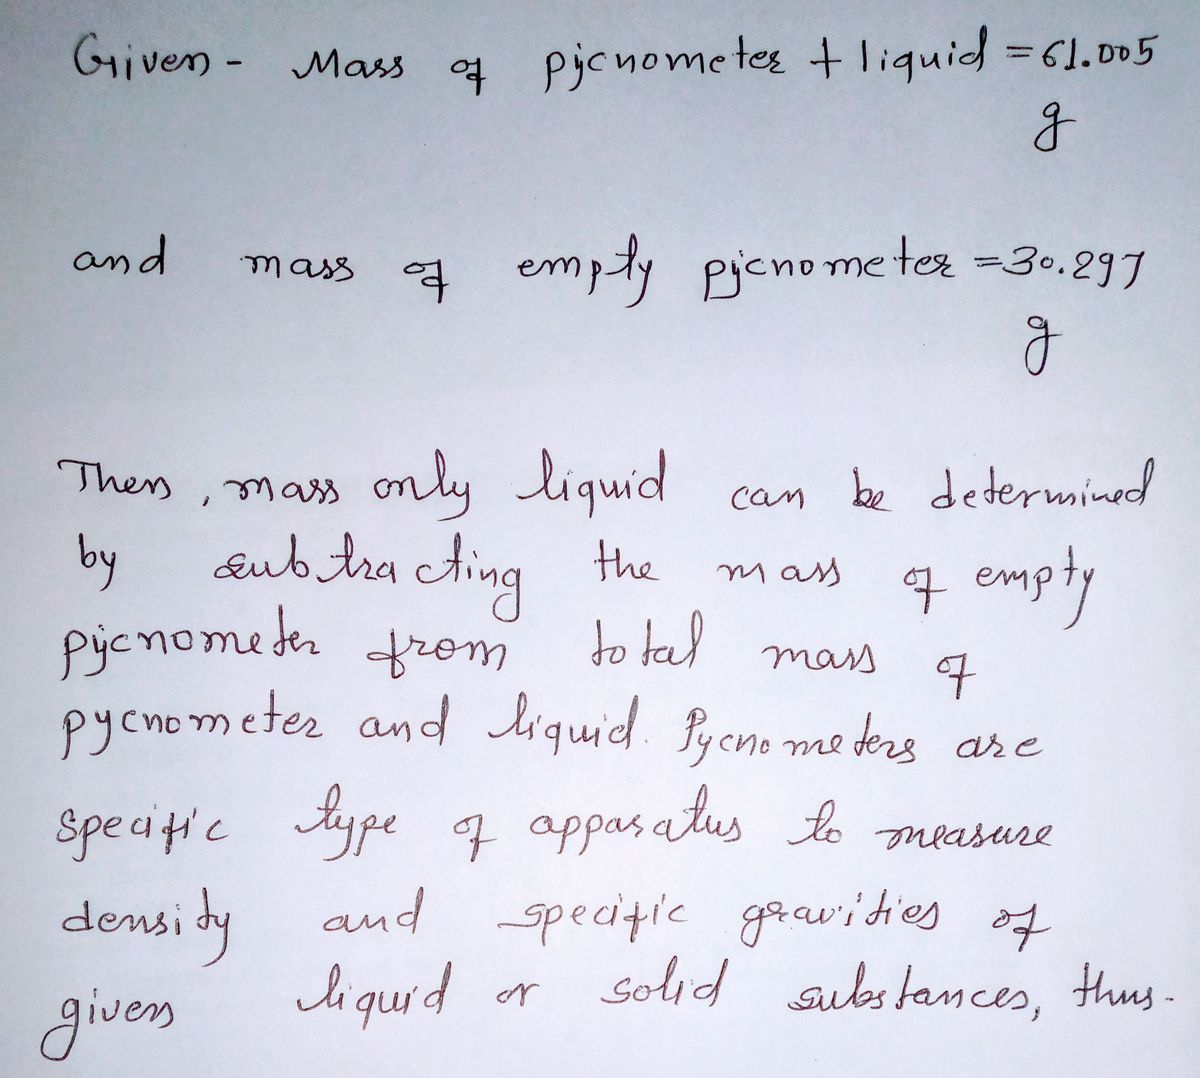 Given - Mass of pycnometer + liquid = 61.005
g
and mass of empty pycnometer = 30.297
g
Then, mass only liquid can be determined
by subtracting the mass of empty
pycnometer from total mass of
pycnometer and liquid. Pycnometers are
specific type of apparatus to measure
density and specific gravities of
given liquid or solid substances, thus-